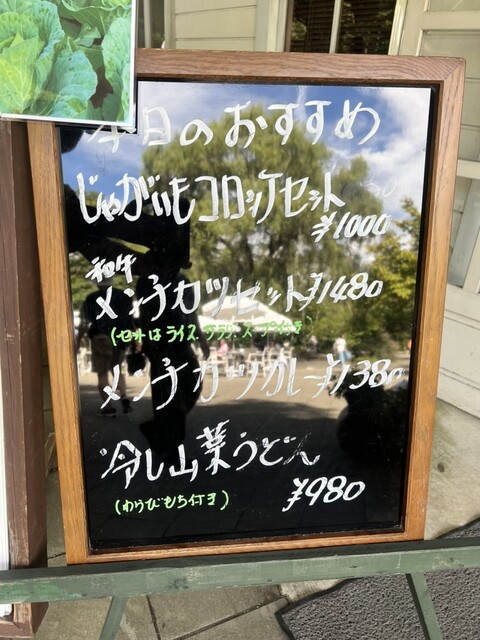 今日のおすすめ
じゃがいもコロッケセット
¥1000
和牛
メンチカツセット ¥1480
(セットはライス サラダ スープ付き)
メンチカツカレー ¥1380
冷し山菜うどん
(わらびもち付き) ¥980